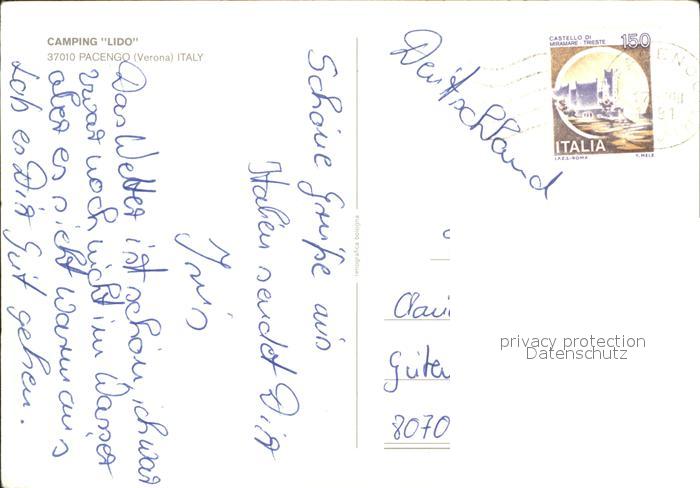 CAMPING "LIDO"
37010 PACENGO (Verona) ITALY
Schöne Grüße aus
Italien sendet Dir
Iris
Das Wetter ist schön, ich war
zwar noch nicht im Wasser
aber es sieht warm aus
Ich es Dir gut gehen.
fotografica bologna
Deutschland
CASTELLO DI
MIRAMARE - TRIESTE
150
ITALIA
I.P.Z.S.-ROMA
T. MELE
Clau
Guten
8070
privacy protection
Datenschutz